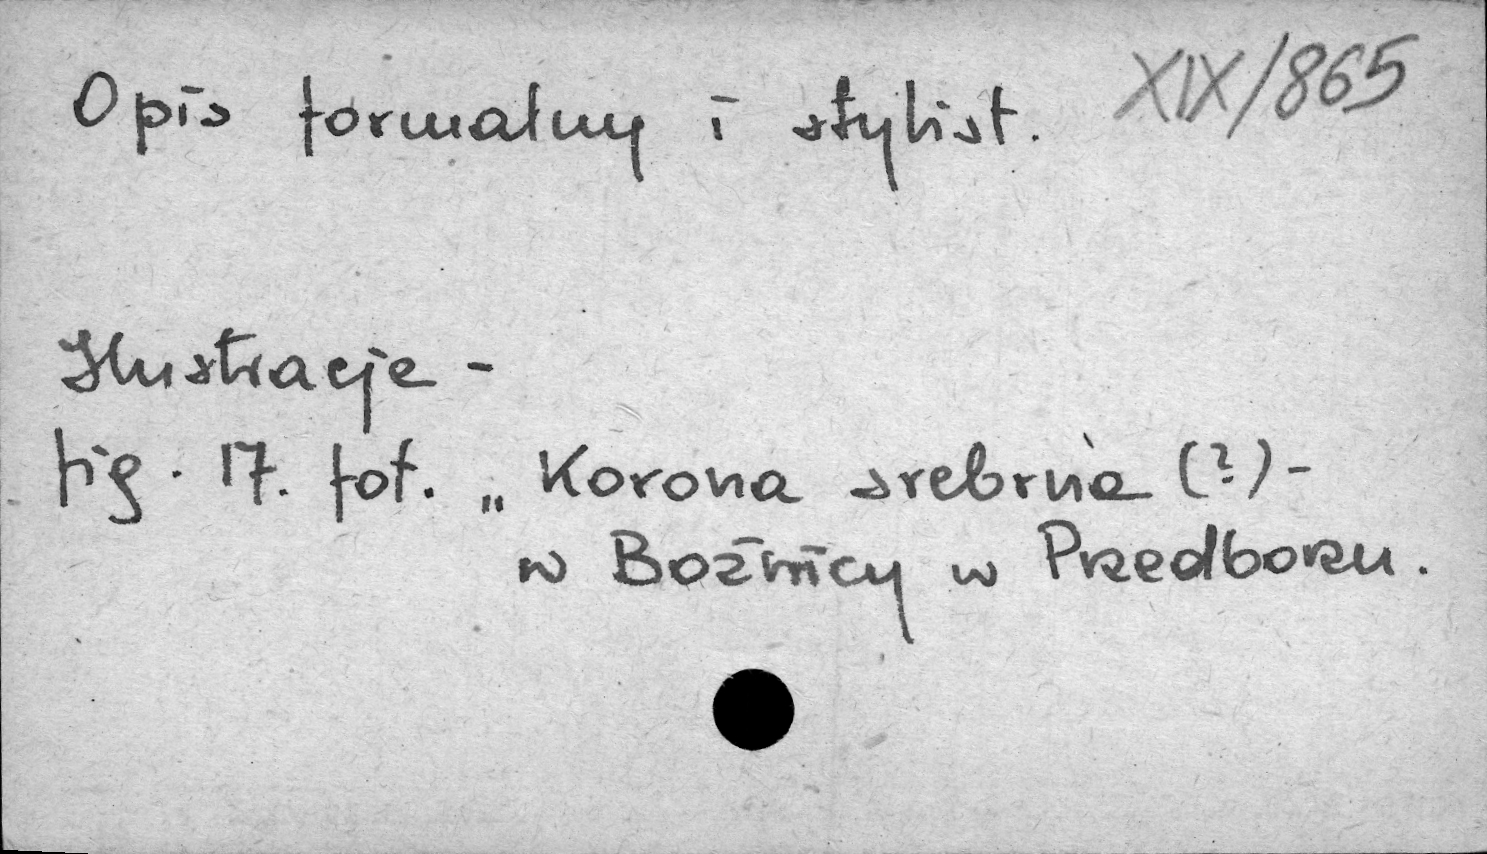 XIX/865
Opis formalny i stylist.
Ilustracje -
fig. 17. fot. „Korona srebrna (?) -
w Boźnicy w Przedborzu.